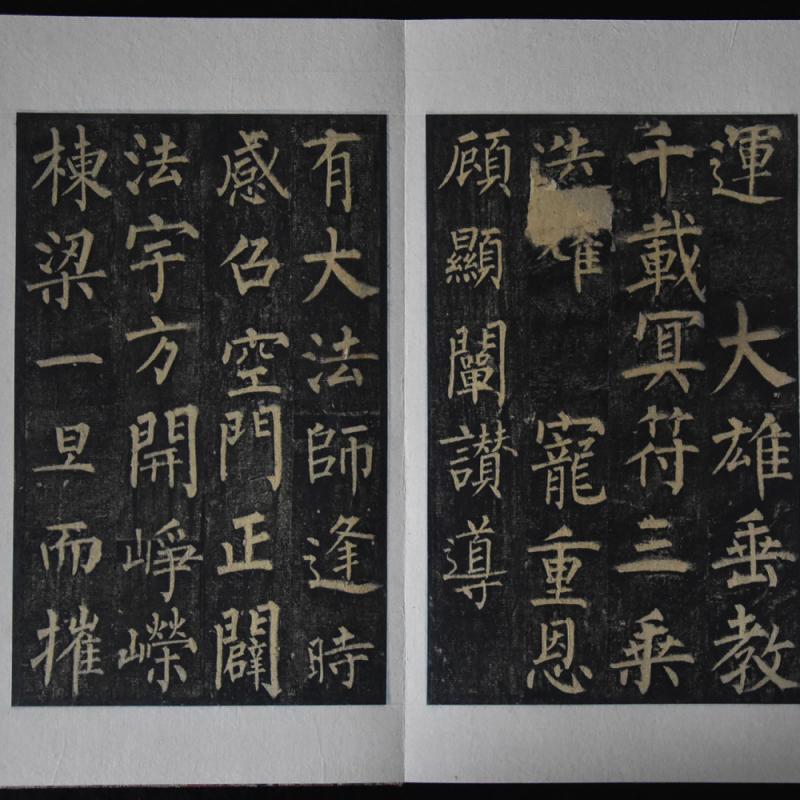 運 大雄垂教
千載冥符三乘
寵重恩
顧顯闡讚導
有大法師逢時
感召空門正闢
法宇方開崢嶸
棟梁一旦而摧